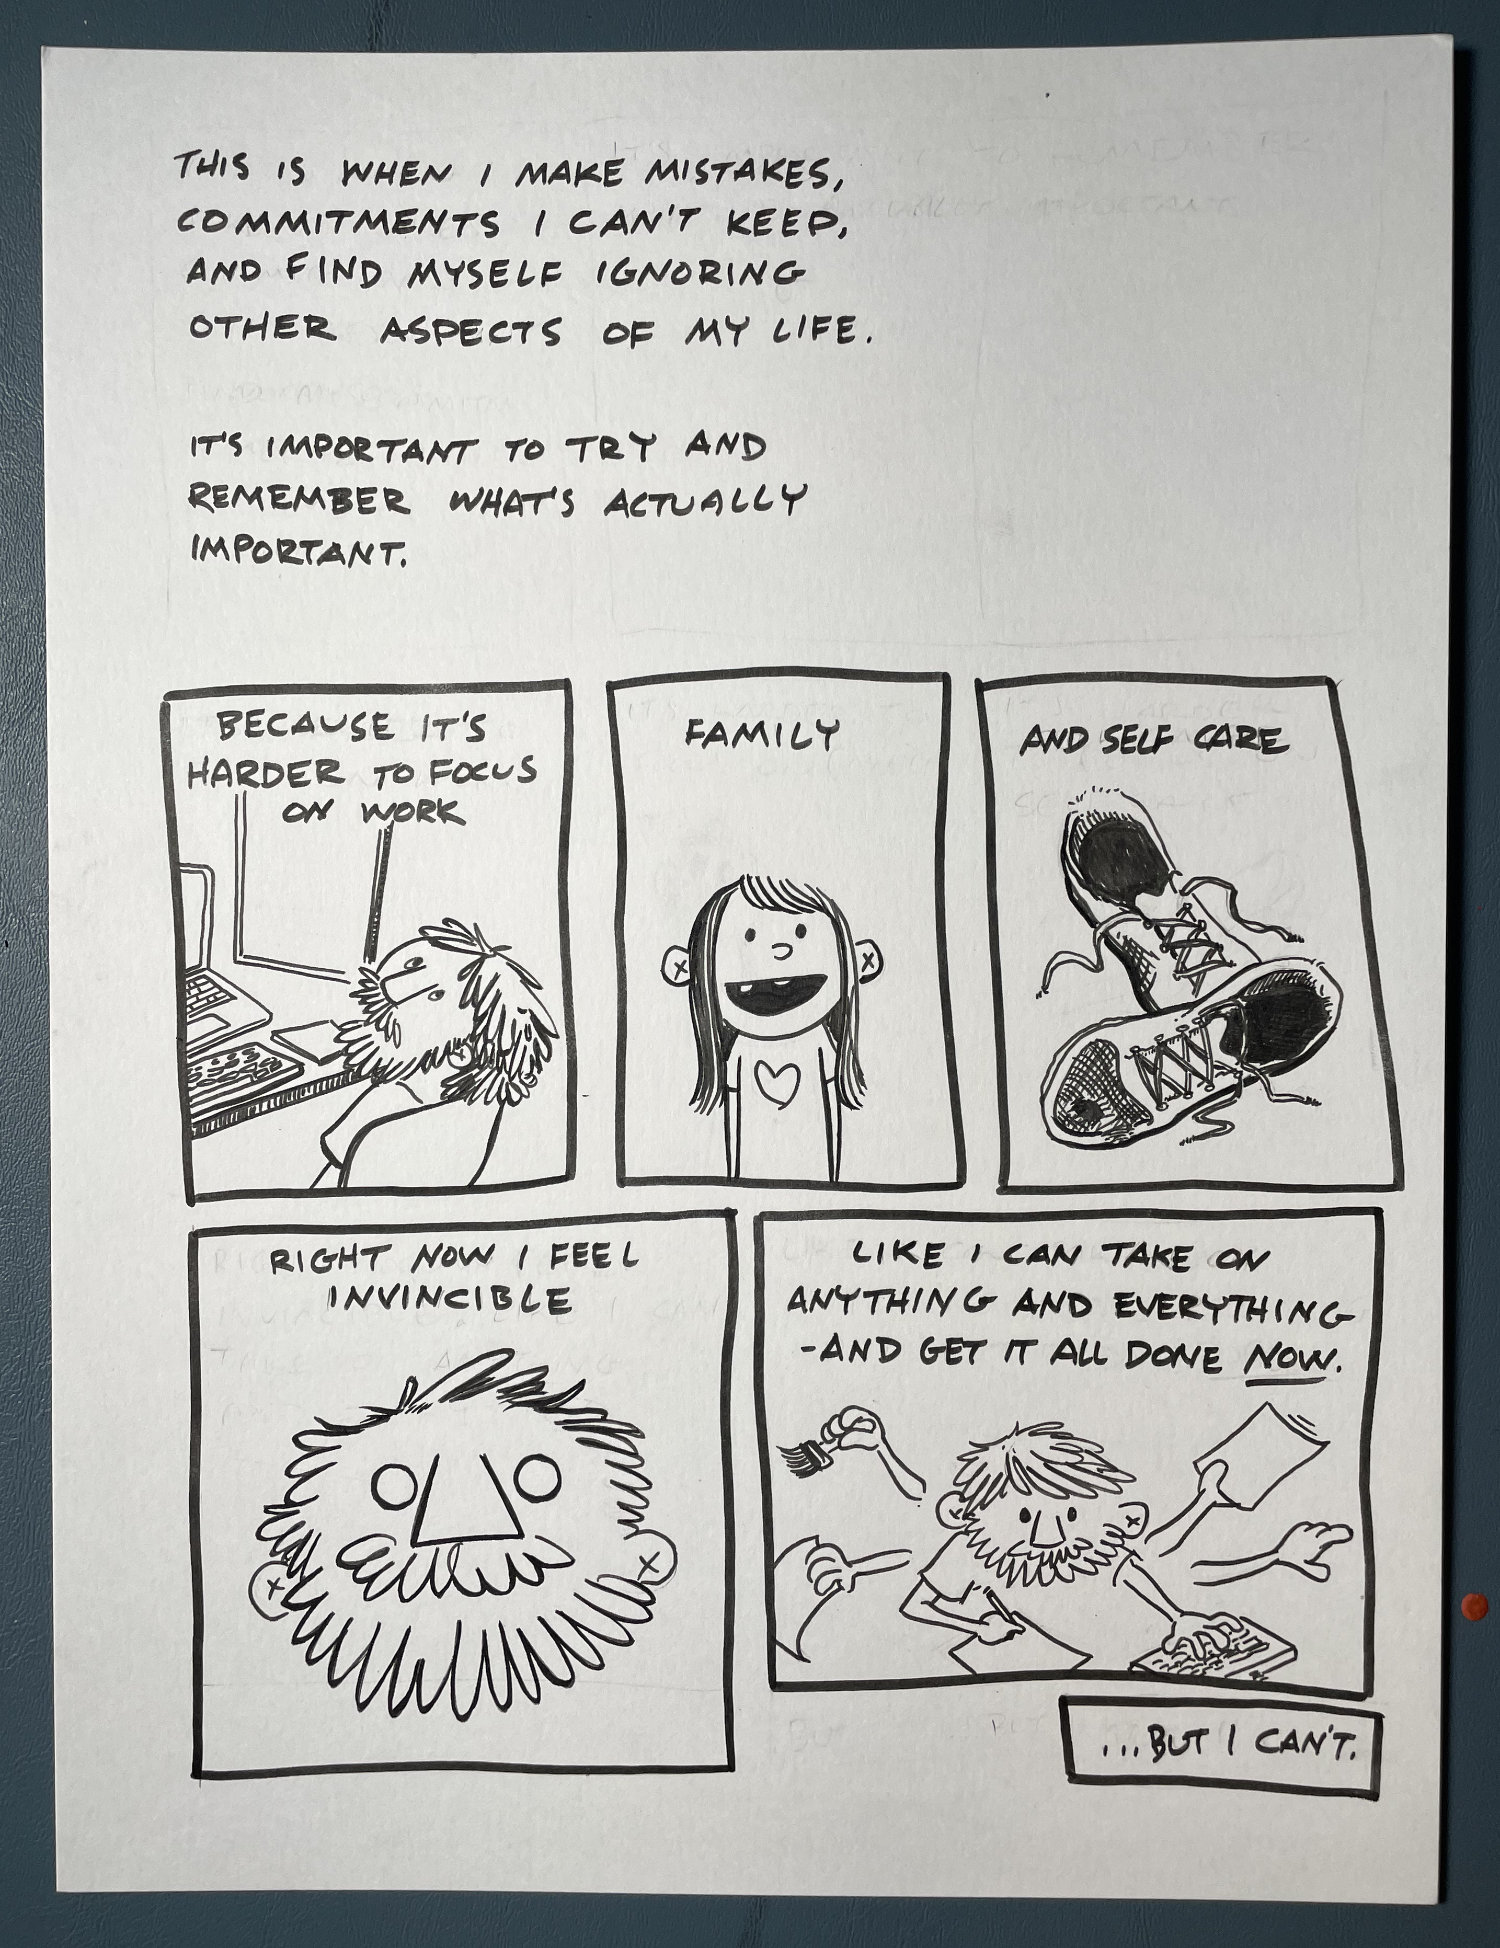 THIS IS WHEN I MAKE MISTAKES,
COMMITMENTS I CAN'T KEEP,
AND FIND MYSELF IGNORING
OTHER ASPECTS OF MY LIFE.
IT'S IMPORTANT TO TRY AND
REMEMBER WHAT'S ACTUALLY
IMPORTANT.
BECAUSE IT'S
HARDER TO FOCUS
ON WORK
FAMILY
AND SELF CARE
RIGHT NOW I FEEL
INVINCIBLE
LIKE I CAN TAKE ON
ANYTHING AND EVERYTHING
-AND GET IT ALL DONE NOW.
...BUT I CAN'T.